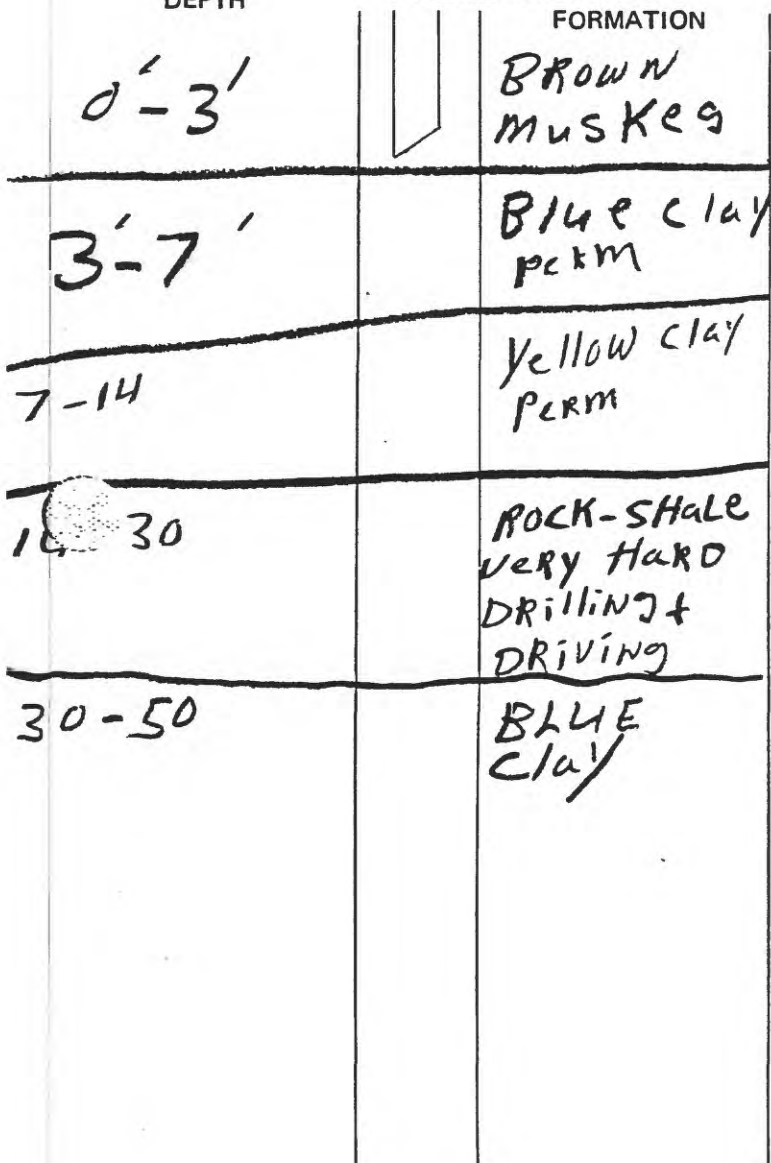 DEPTH
FORMATION
0'-3'
BROWN
MusKeg
3'-7'
Blue Clay
perm
7-14
Yellow Clay
PERM
30
ROCK-SHALE
VERY HARD
DRilliNg +
DRiViNg
30-50
BLUE
Clay